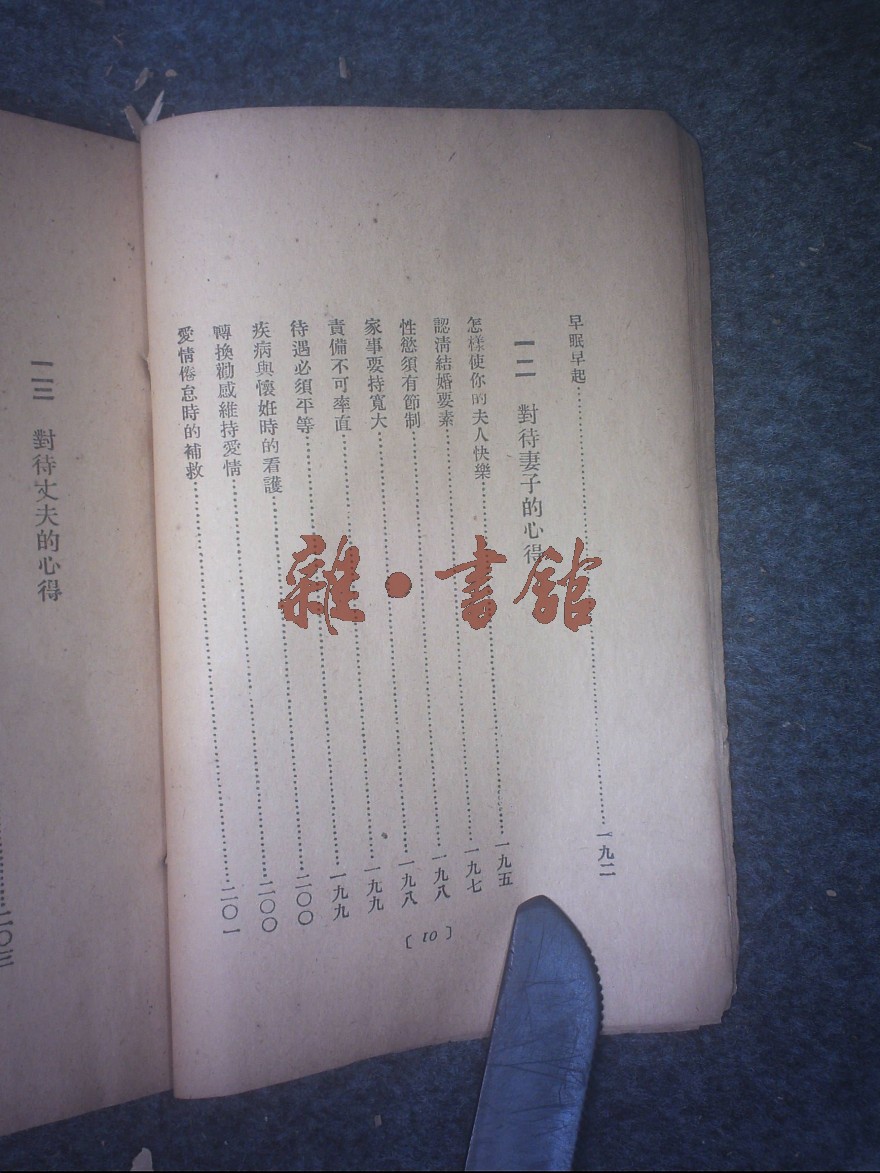 早眠早起…一九二
一二 對待妻子的心得
怎樣使你的夫人快樂…一九五
認淸結婚要素…一九七
性慾須有節制…一九八
家事要持寬大…一九八
責備不可率直…一九九
待遇必須平等…一九九
疾病與懷姙時的看護…二〇〇
轉換勸感維持愛情…二〇〇
愛情倦怠時的補救…二〇一
〔10〕
一三 對待丈夫的心得
二〇三
雜·書館